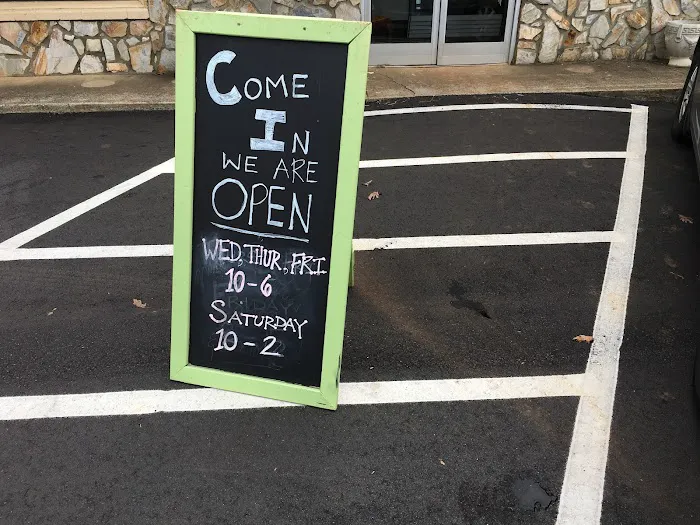 COME
IN
WE ARE
OPEN
WED, THUR, FRI
10-6
SATURDAY
10-2